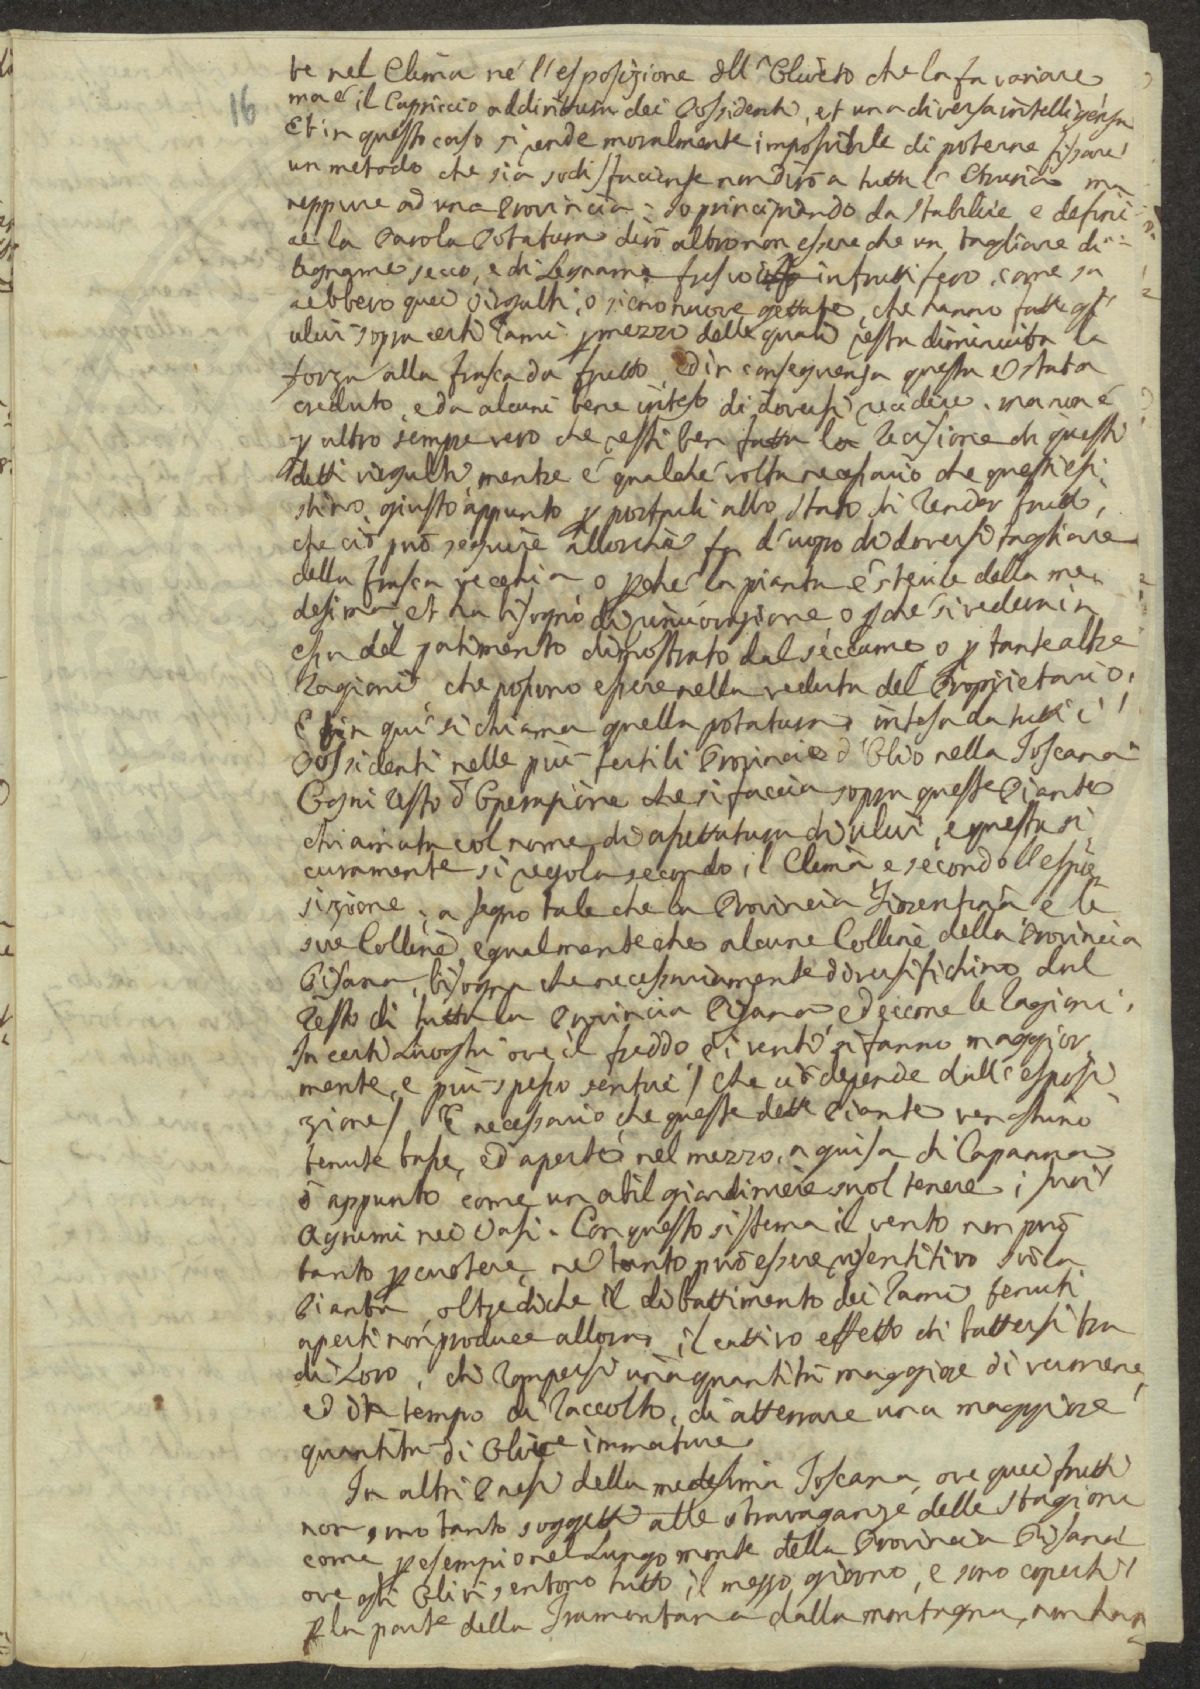 te nel Clima né l'esposizione dell'Oliveto che la fa variare
16
ma è il Capriccio addirittura dei Possidenti, et una diversa intelligenza
Et in questo caso si rende moralmente impossibile di poterne fissare
un metodo che sia sodisfaciente non dirò a tutta l'Etruria ma
neppure ad una Provincia. Io principiando da stabilire e defini
re la Parola Potatura dirò altro non essere che un tagliare di
legname secco, e di Legname fresco infruttifero, come sa
rebbero quei virgulti, o siano nuove gettate, che hanno fatte gl'
ulivi sopra certi rami p mezzo delle quali resta diminuita la
forza alla frasca da frutto, ed in conseguenza questa è stata
creduto, e da alcuni bene inteso di doversi recidere. ma non è
p altro sempre vero che resti ben fatta la recisione di questi
detti virgulti, mentre è qualche volta necessario che questi esi
stino, giusto appunto p portarli allo stato di render frutto,
che ciò può seguire allorché fa d'uopo di doversi tagliare
della frasca vecchia o pché la pianta è sterile della me
desima et ha bisogno di rinnovazione o pché si veda in
essa del patimento dimostrato dal seccume, o p tante altre
ragioni che possono essere nella veduta del Proprietario.
E fin qui si chiama quella potatura, intesa da tutti i
Possidenti nelle più fertili Provincie d'Olio nella Toscana
Ogni resto d'Operazione che si faccia sopra queste Piante
chiamata col nome di assettatura di ulivi, e questa si
curamente si regola secondo il Clima e secondo l'espo
sizione, a segno tale che la Provincia Fiorentina e le
sue Colline, egualmente che alcune Colline della Provincia
Pisana, bisogna che necessariamente diversifichino dal
resto di tutta la Provincia Pisana ed eccone le ragioni.
In certi Luoghi ove il freddo e i venti si fanno maggior
mente, e più spesso sentire / che ciò depende dall'esposi
zione / È necessario che queste dette Piante venghino
tenute basse, ed aperte nel mezzo, a guisa di Capanna
o appunto come un abil giardiniere suol tenere i suoi
Agrumi nei Vasi. Con questo sistema il vento non può
tanto pcuotere, né tanto può essere risentitivo su la
Pianta oltrediché il dibattimento dei rami tenuti
aperti non produce allora, il cattivo effetto di battersi tra
di Loro, di rompersi una quantità maggiore di vermene,
ed in tempo di raccolto, di atterrare una maggiore
quantità di Olive immature.
In altri Paesi della medesima Toscana, ove quei frutti
non sono tanto soggetti alle stravaganze delle stagioni
come p esempio nel Lungo monte della Provincia Pisana
ove gli Olivi sentono tutto il mezzo giorno, e sono coperti
p la parte della Tramontana dalla montagna, non han